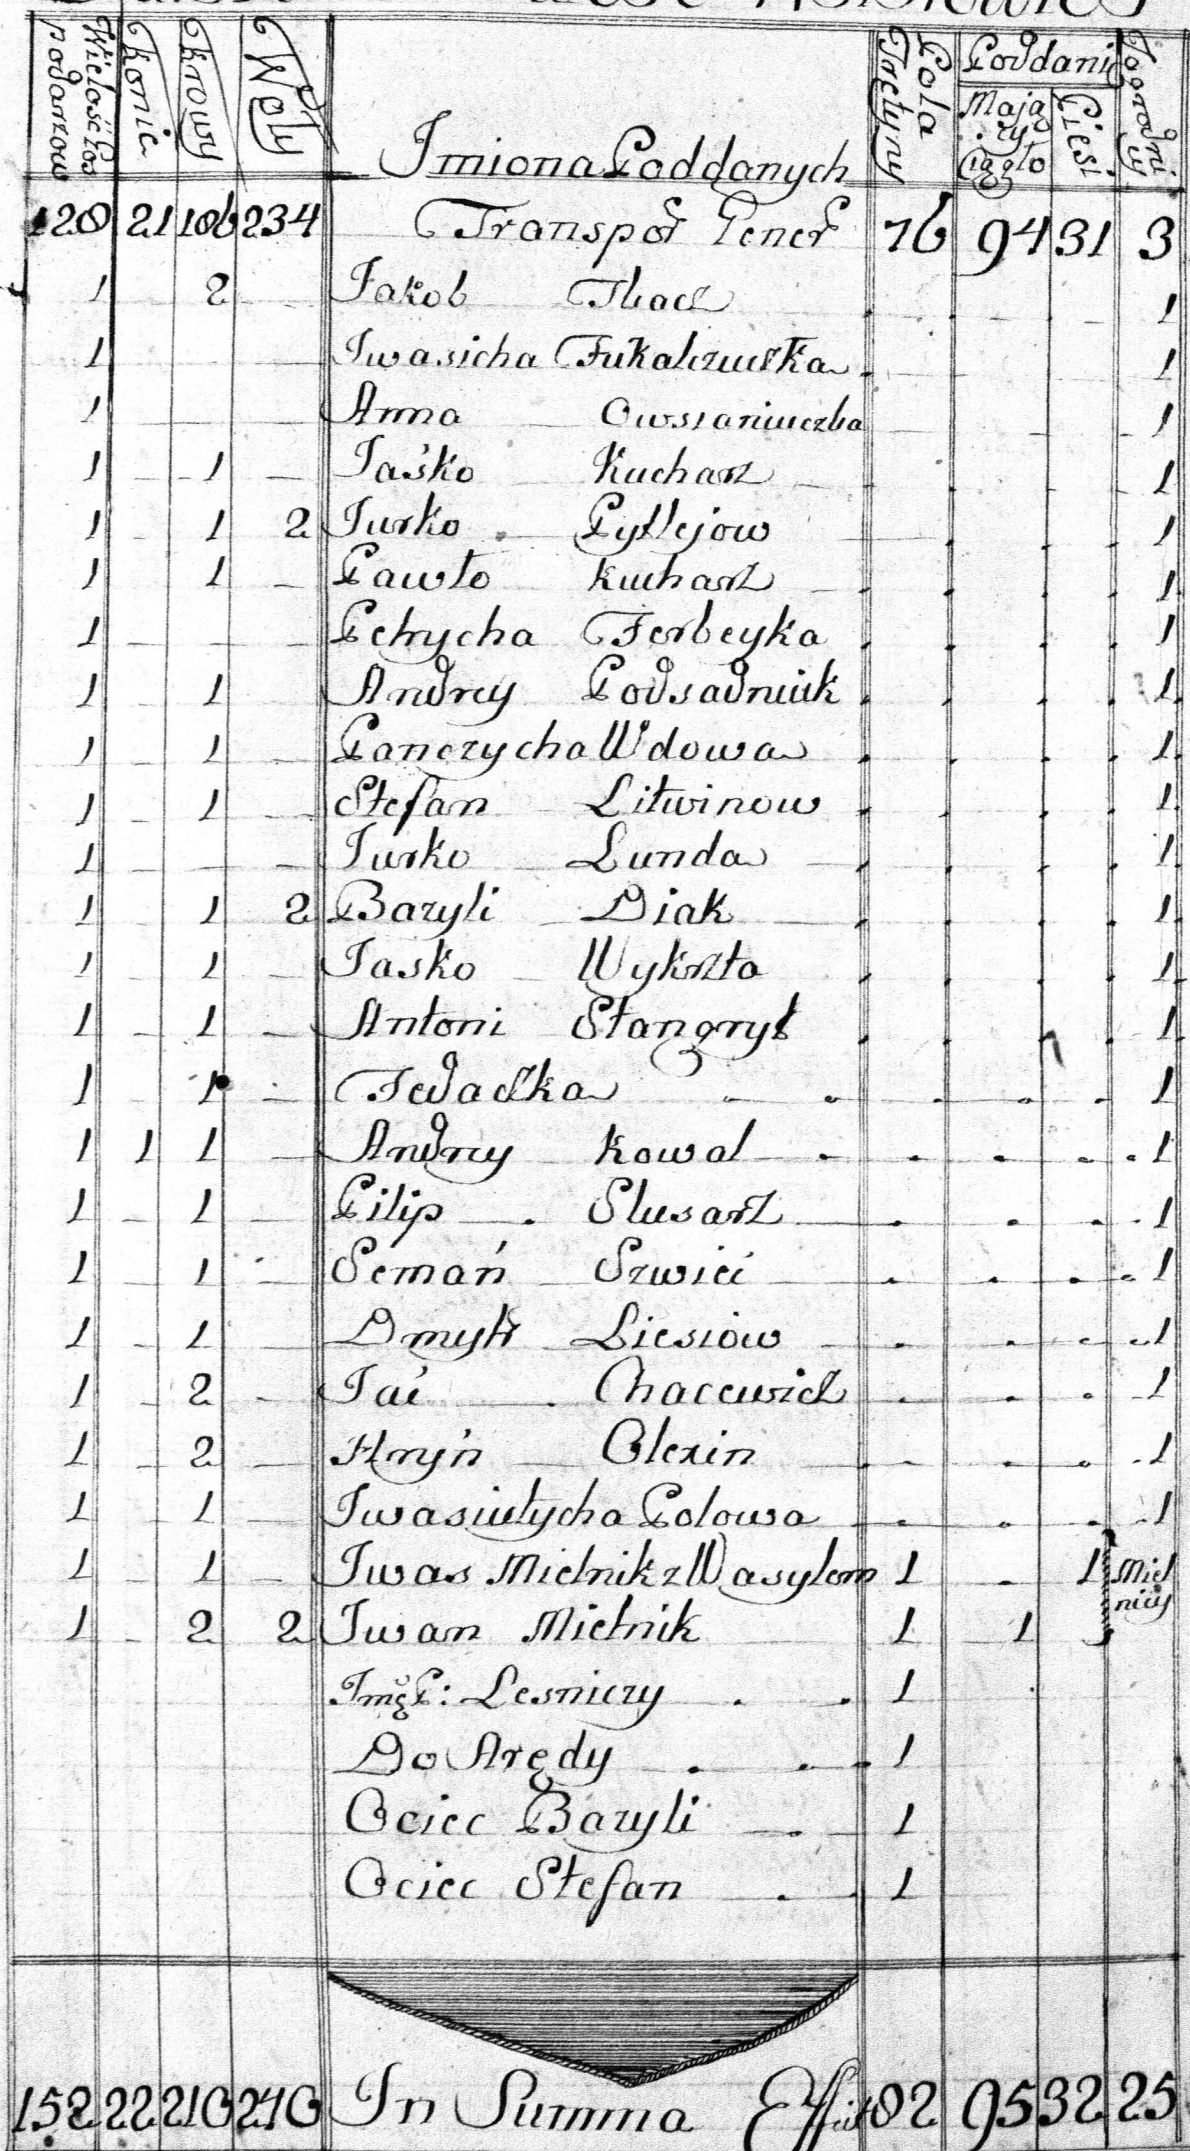 Wielość Gospodarzow | Konie | Krowy | Woły | Imiona Poddanych | Pola Tretyny | Poddani Mający Ciągło | Piesi | Zagrodnicy
128 21 186 234 Transpor Gener 76 94 31 3
1 2 Jakob Tkacz 1
1 Iwasicha Fukalczucka 1
1 Anna Owsianiuczka 1
1 1 Jaśko Kucharz 1
1 1 2 Jurko Pytlejow 1
1 1 Pawło Kucharz 1
1 Petrycha Ferbeyka 1
1 1 Andrey Podsadniuk 1
1 1 Panczycha Wdowa 1
1 1 Stefan Litwinow 1
1 Jurko Lunda 1
1 1 2 Bazyli Diak 1
1 1 Jasko Wykrzta 1
1 1 Antoni Stangryt 1
1 1 Fedaczka 1
1 1 1 Andrey Kowal 1
1 1 Pilip Slusarz 1
1 1 Semań Szwieć 1
1 1 Dmytr Liesiow 1
1 2 Jać Chacewicz 1
1 2 Hryń Olexin 1
1 1 Iwasiutycha Polowa 1
1 1 Iwas Mielnik z Wasylem 1 1 Miel
nicy
1 2 2 Iwan Mielnik 1 1
Jmć P: Lesniczy 1
Do Arędy 1
Ociec Bazyli 1
Ociec Stefan 1
152 22 210 240 In Summa Effic 82 95 32 25